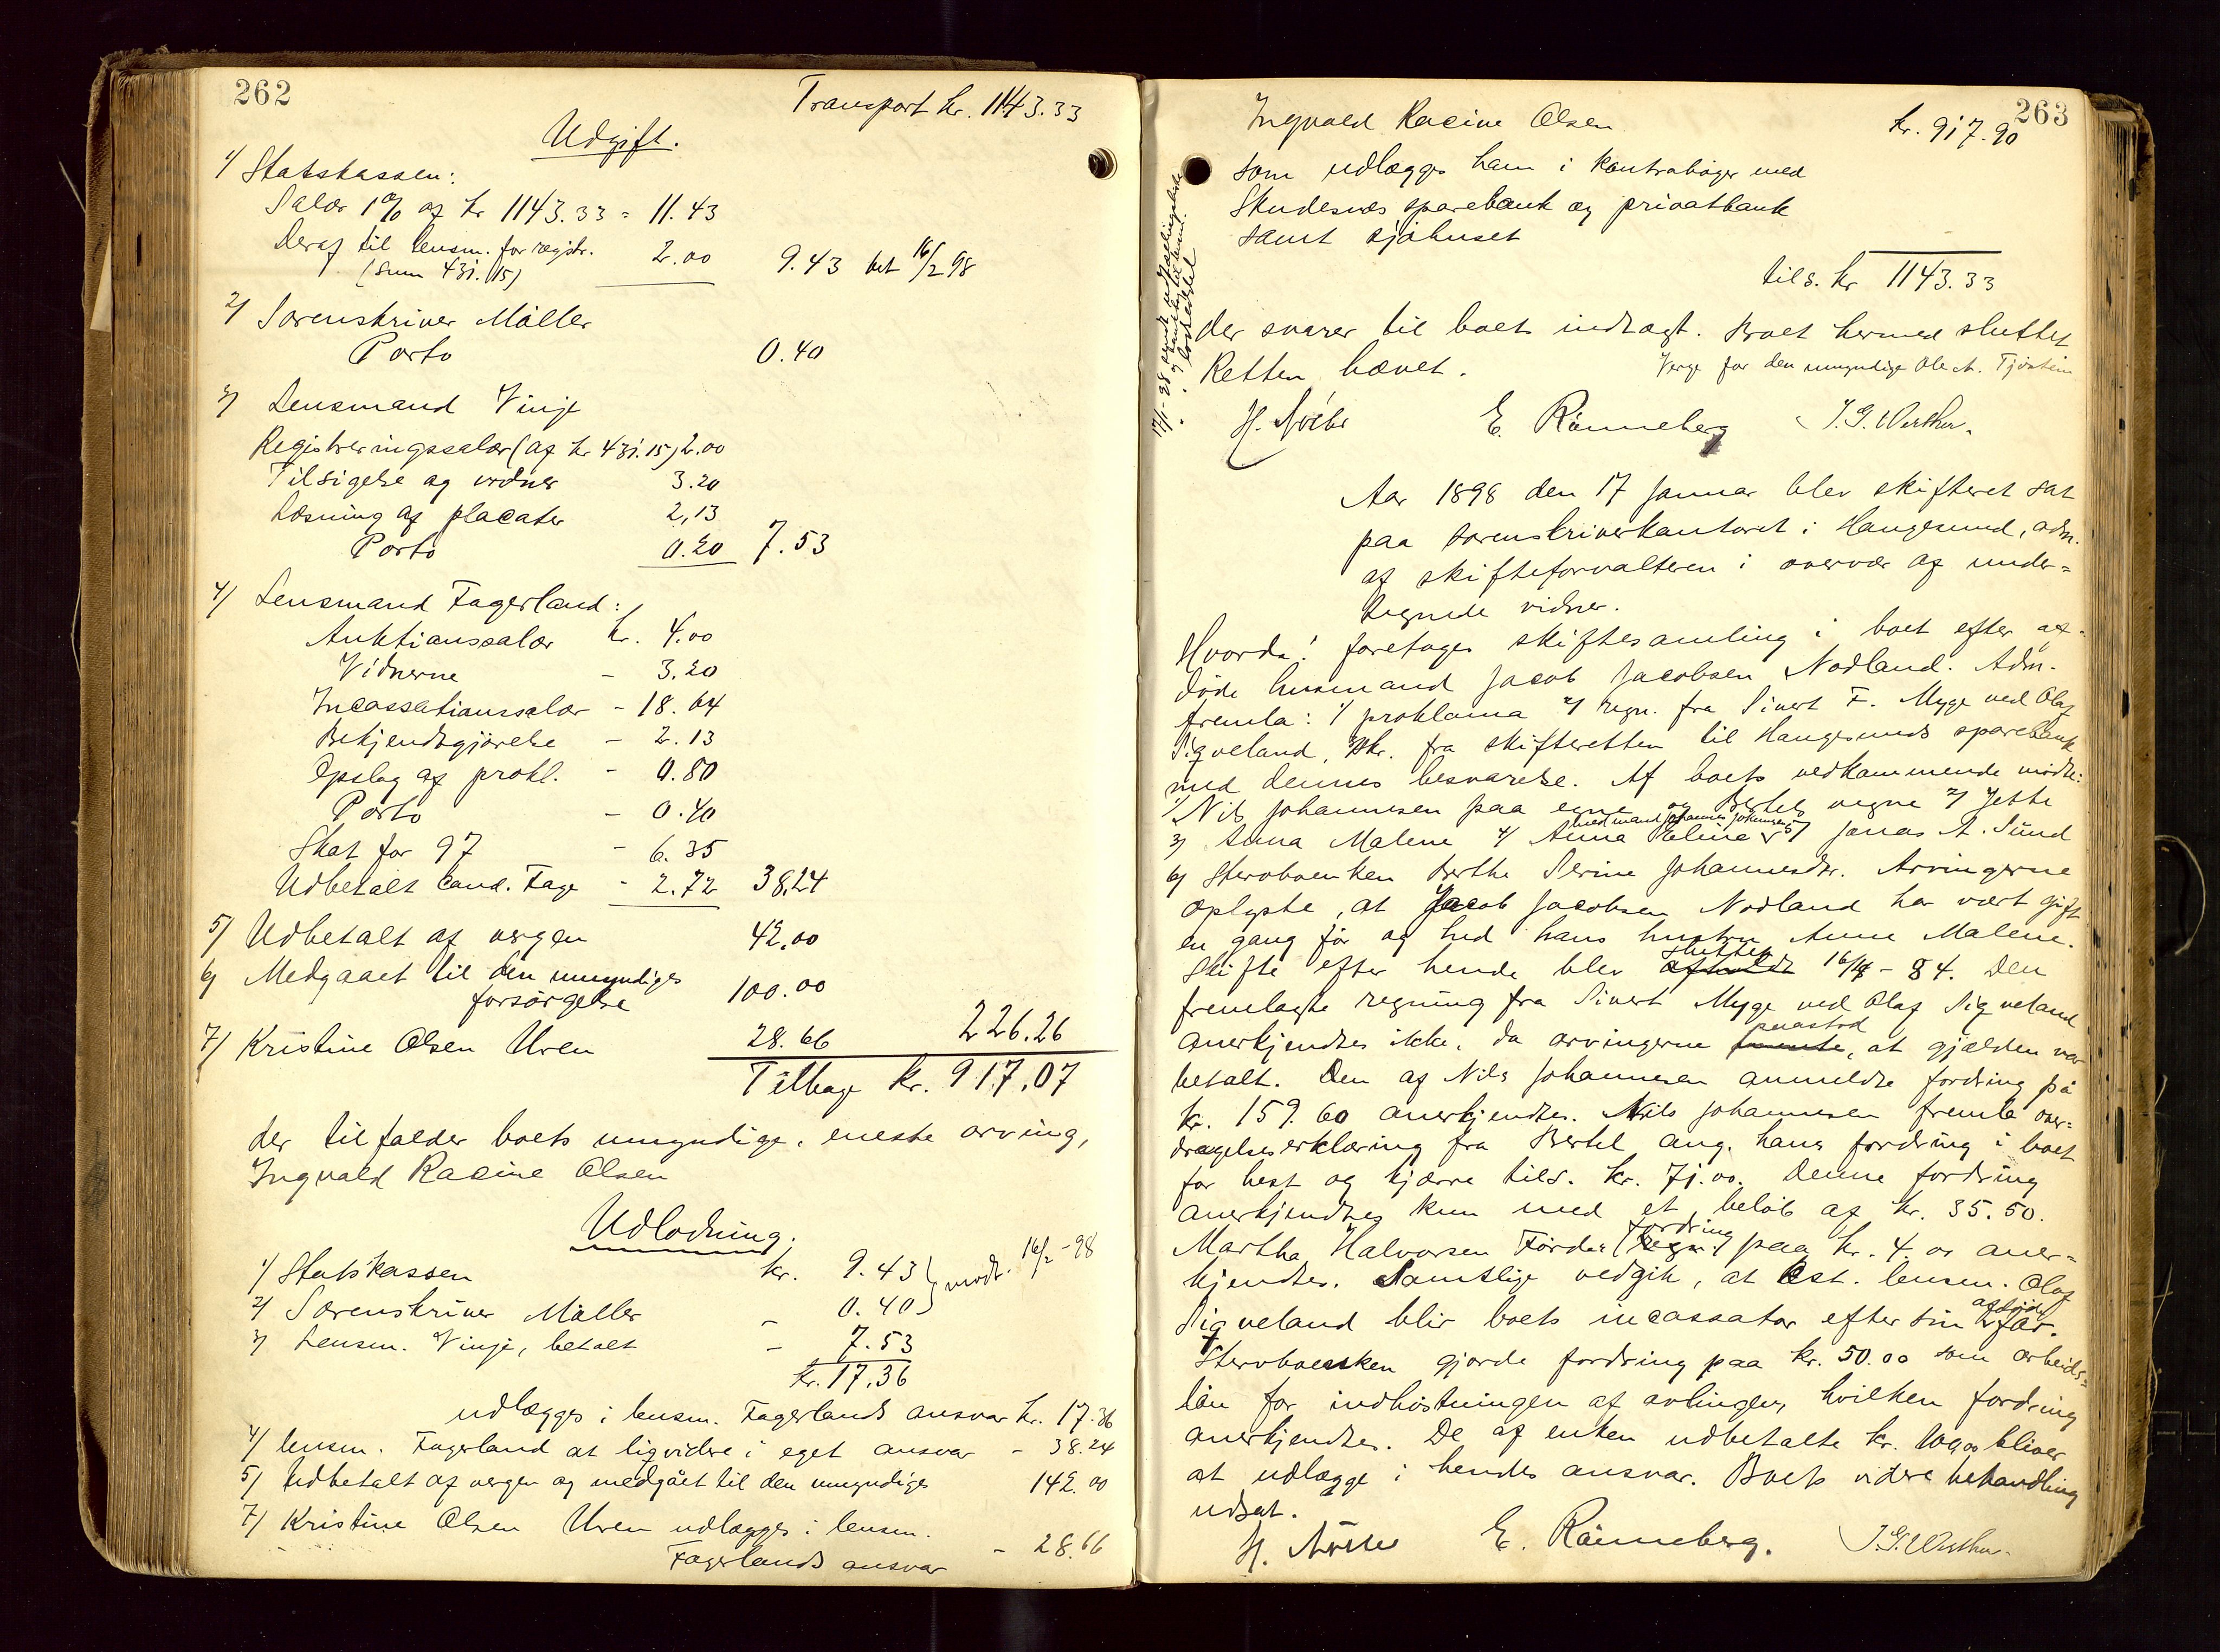 262
Transport kr. 1143.33
Udgift.
1/ Statskassen:
Salær 1% af kr 1143.33 = 11.43
Deraf til lensm. for registr. 2.00 9.43 bet 16/2 98
(Sum 431.15)
2/ Sorenskriver Møller
Porto 0.40
3/ Lensmand Vinje
Registreringssalær (af kr 431.15) 2.00
Tilsigelse og vidner 3.20
Læsning af placater 2,13
Porto 0.20 7.53
4/ Lensmand Fagerland:
Auktionssalær kr. 4.00
Vidnerne - 3.20
Incassationssalær - 18.64
Bekjendtgjørelse - 2.13
Opslag af prokl. - 0.80
Porto - 0.40
Skat for 97 - 6.35
Udbetalt cand. Fage - 2.72 38,24
5/ Udbetalt af vergen 42.00
6/ Medgaaet til den umyndiges
forsørgelse 100.00
7/ Kristine Olsen Uren 28.66 226.26
Tilbage kr. 917.07
der tilfalder boets umyndige, eneste arving,
Ingvald Racine Olsen
Udlodning.
1/ Statskassen kr. 9.43 } modt. 16/2-98
2/ Sorenskriver Møller - 0.40
3/ Lensm. Vinje, betalt - 7.53
kr. 17.36
udlægges i lensm. Fagerlands ansvar kr. 17.36
4/ lensm. Fagerland at liqvidere i eget ansvar - 38.24
5/ Udbetalt af vergen og medgået til den umyndiges 142.00
7/ Kristine Olsen Uren udlægges i lensm.
Fagerlands ansvar - 28.66
263
Ingvald Racine Olsen kr. 917.90
som udlægges ham i kontrabøger med
Skudesnæs sparebank og privatbank
samt sjøhuset
tils. kr 1143.33
der svarer til boets indtægt. Boet hermed sluttet
Retten hævet. Verge for den umyndige Ole A. Tjøstein
E. Rønneberg
Aar 1898 den 17 januar blev skifteret sat
paa sorenskriverkontoret i Haugesund, adm.
af skifteforvalteren i overvær af under=
tegnede vidner.
Hvorda! foretoges skiftesamling i boet efter af-
døde husmand Jacob Jacobsen Nodland. Adm.
fremla: 1/ proklama 2/ regn. fra Sivert F. Myge ved Olaf
Sigveland, skr. fra skifteretten til Haugesunds sparebank
med dennes besvarelse. Af boets vedkommende mødte:
1/ Nils Johannesen paa egne og Bertels vegne 2/ Jette
med mand Johannes Johannesen
3/ Anna Malene 4/ Anna Eline 5/ Jonas A. Sund
6/ Stervboenken Berthe Serine Johannesdtr. Arvingerne
oplyste, at Jacob Jacobsen Nodland har vært gift
en gang før og hed hans hustru Anne Malene.
sluttet
Skifte efter hende blev afholdt 16/ - 84. Den
fremlagte regning fra Sivert Myge ved Olaf Sigveland
paastod
anerkjendtes ikke, da arvingerne, at gjælden var
betalt. Den af Nils Johannesen anmeldte fordring på
kr. 159.60 anerkjendtes. Nils Johannesen fremla over=
dragelseserklæring fra Bertel ang. hans fordring i boet
for hest og kjærre tils. kr. 71.00. Denne fordring
anerkjendtes kun med et beløb af kr. 35.50.
fordring
Martha Halvorsen Førdes (regn.) paa kr. 4.00 aner=
kjendtes. Samtlige vedgik, at Cst. lensm. Olaf
afdøde
Sigveland blir boets incassator efter sin far.
Stervboenken gjorde fordring paa kr. 50.00 som arbeids=
løn for indhøstningen af avlingen, hvilken fordring
anerkjendtes. De af enken udbetalte kr. bliver
at udlægge i hendes ansvar. Boets videre behandling
udsat.
E. Rønneberg.